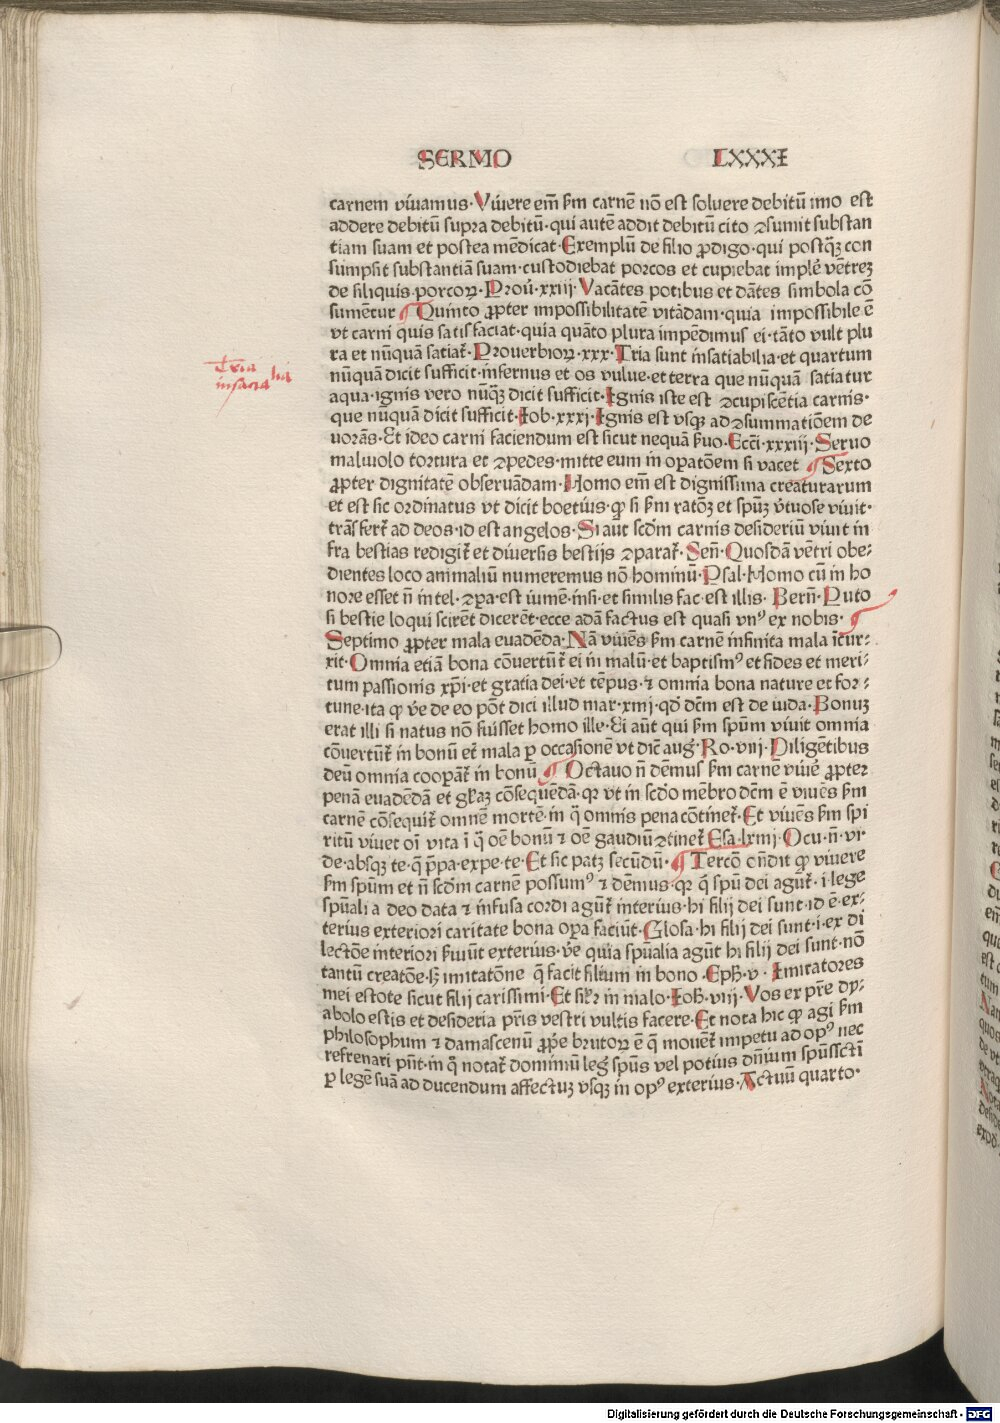 SERMO LXXXI
carnem viuamus·Viuere em̄ ẜm carnē nō est soluere debitū imo est
addere debitū supra debitū·qui autē addit debitū cito ꝯsumit substan
tiam suam et postea mēdicat·Exemplū de filio ꝓdigo·qui postqꝫ con
sumpsit substantiā suam·custodiebat porcos et cupiebat implẽ vētreꝫ
de siliquis·porcoꝝ·Prou̅·xxiij·Vacātes potibus et dātes simbola cō
sumētur ¶Quinto ꝓpter impossibilitatē vitādam·quia impossibile ē
vt carni quis satisfaciat·quia quāto plura impēdimus ei·tāto vult plu
ra et nūquā satiat̄·Prouerbioꝝ·xxx·Tria sunt insatiabilia·et quartum
nūquā dicit sufficit·infernus et os vulue·et terra que nūquā satiatur
aqua·ignis vero nūqꝫ dicit sufficit·Ignis iste est ꝯcupiscētia carnis·
que nūquā dicit sufficit·Iob·xxxi·Ignis est vsqꝫ ad ꝯsummatiōem de
uorās·Et ideo carni faciendum est sicut nequā ẜuo·Ecci̅·xxxiij·Seruo
maliuolo tortura et ꝯpedes·mitte eum in oꝑatōem si vacet ¶Sexto
ꝓpter dignitatē obseruādam·Homo em̄ est dignissima creaturarum
et est sic ordinatus vt dicit boetius·ꝙ si ẜm ratōꝫ et spūꝫ v̄tuose viuit·
trāsfert̄ ad deos·id est angelos·Si aut scd̄m carnis desideriū viuit in
fra bestias redigit̄ et diuersis bestijs ꝯparat̄·Sen̄·Quosdā vētri obe⸗
dientes loco animaliū numeremus nō hominū·Psal·Homo cū in ho
nore esset n̄ intel·ꝯpa·est iumē·insi·et similis fac·est illis· Bern̄·Puto
si bestie loqui scirēt dicerēt·ecce adā factus est quasi vn⁹ ex nobis· ¶
Septimo ꝓpter mala euadēda·Nā viuēs ẜm carnē infinita mala īcur⸗
rit·Omnia etiā bona cōuertūt̄ ei in malū·et baptism⁹ et fides et meri⸗
tum passionis xp̄i·et gratia dei·et tēpus·⁊ omnia bona nature et for⸗
tune·ita ꝙ v̄e de eo pōt dici illud mar·xiiij·qd̄ dc̄m est de iuda·Bonuꝫ
erat illi si natus nō fuisset homo ille·Ei aūt qui ẜm spūm viuit omnia
cōuertūt̄ in bonū et̄ mala ꝑ occasionē vt dic̄ auḡ·Ro·viij·Diligētibus
deū omnia cooꝑāt̄ in bonū ¶Octauo n̄ dēmus ẜm carnē viuẽ ꝓpter
penā euadēdā et gl̄iaꝫ cōsequēdā·qꝛ vt in scd̄o mēbro dc̄m ē viuēs ẜm
carnē cōsequit̄ omnē mortē·in q̄ omnis pena cōtinet̄·Et viuēs ẜm spi
ritū viuet oī vita ī q̄ oē bonū ⁊ oē gaudiū ꝯtinet̄ Esa·lxiiij·Ocu·n̄·vi·
de·absqꝫ te·q̄ p̄pa·expe·te·Et sic patꝫ secūdū·¶Tercō on̄dit ꝙ viuere
ẜm spūm et n̄ scd̄m carnē possum⁹ ⁊ dēmus·qꝛ q̄ spū dei agūt̄·i·lege
spūali a deo data ⁊ infusa cordi agūt̄ interius·hi filij dei sunt·id ē·ex⸗
terius exteriori caritate bona oꝑa faciūt·Glosa·hi filij dei sunt·i·ex di
lectōe interiori ẜuiūt exterius·v̄e quia spūalia agūt hi filij dei sunt·nō
tantū creatōe·ẜꝫ imitatōne q̄ facit filium in bono·Eph̄·v·Imitatores
mei estote sicut filij carissimi·Et sil̄r in malo·Ioh̄·viij·Vos ex pr̄e dy⸗
abolo estis et desideria pr̄is vestri vultis facere·Et nota hic ꝙ agi ẜm
philosophum ⁊ damascenū ꝓṗe brutoꝝ ē q̄ mouēt̄ impetu ad op⁹ nec
refrenari pn̄t·in q̄ notat̄ dominiū leḡ spūs vel potius dn̄ium spūsscti̅
ꝑ legē suā ad ducendum affectuꝫ vsqꝫ in op⁹ exterius·Actuū quarto·
Tria
Digitalisierung gefördert durch die Deutsche Forschungsgemeinschaft - DFG